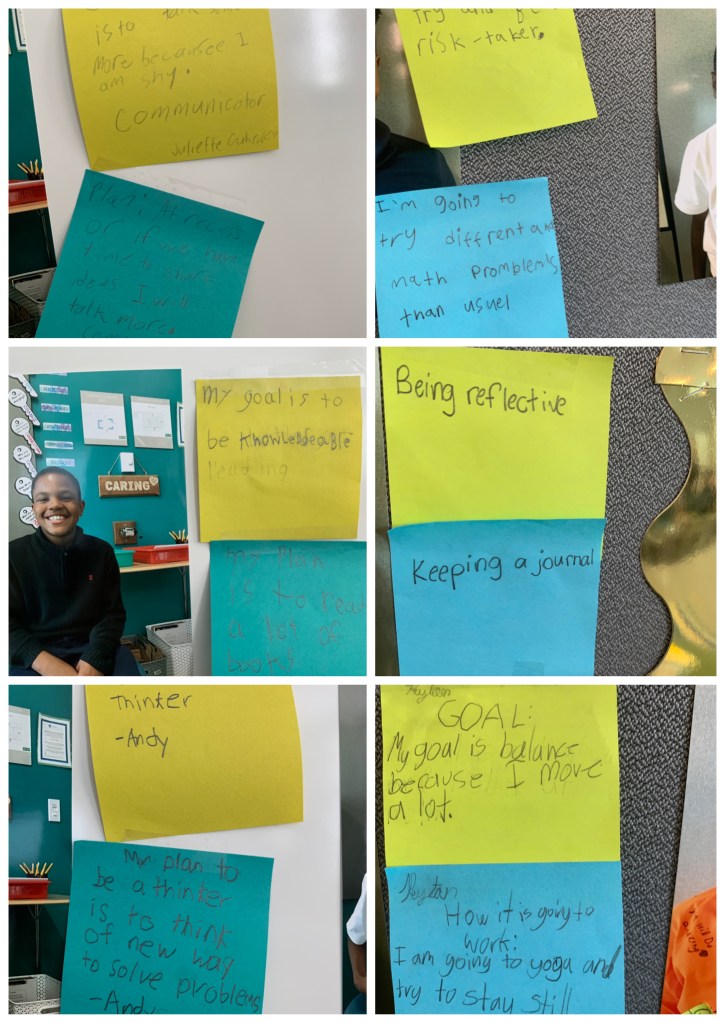 is to talk
more becausee I
am shy.
Communicator
Juliette
Plan: At
or if we have
time to share
ideas I will
talk more.
risk-taker.
I'm going to
try diffrent
math promblems
than usuel
My goal is to
be knowledeable
reading
CARING
my plan
is to read
a lot of
books
Being reflective
Keeping a journal
Thinker
-Andy
My plan to
be a thinker
is to think
of new way
to solve problems
-Andy
GOAL:
My goal is balance
because I move
a lot.
How it is going to
work:
I am going to yoga and
try to stay still